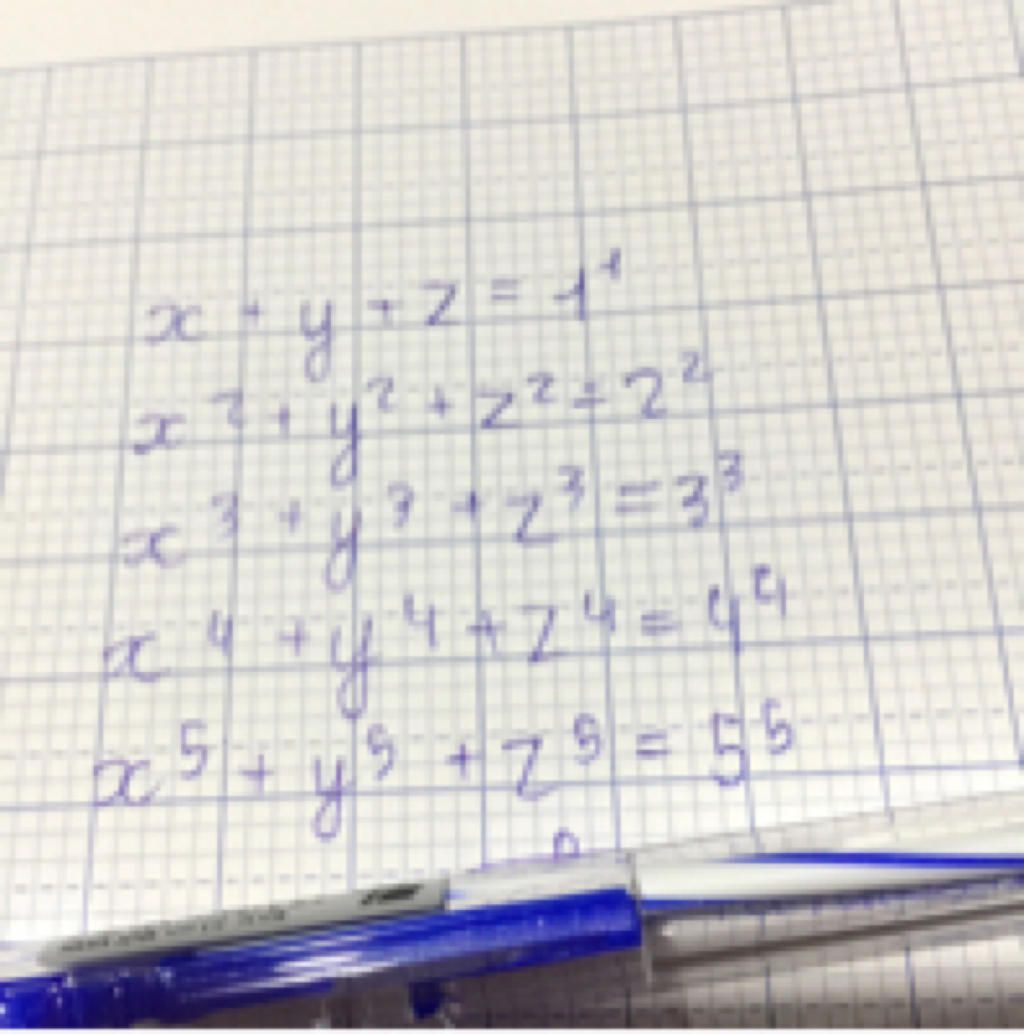 x + y + z = 1¹
x² + y² + z² = 2²
x³ + y³ + z³ = 3³
x⁴ + y⁴ + z⁴ = 4⁴
x⁵ + y⁵ + z⁵ = 5⁵